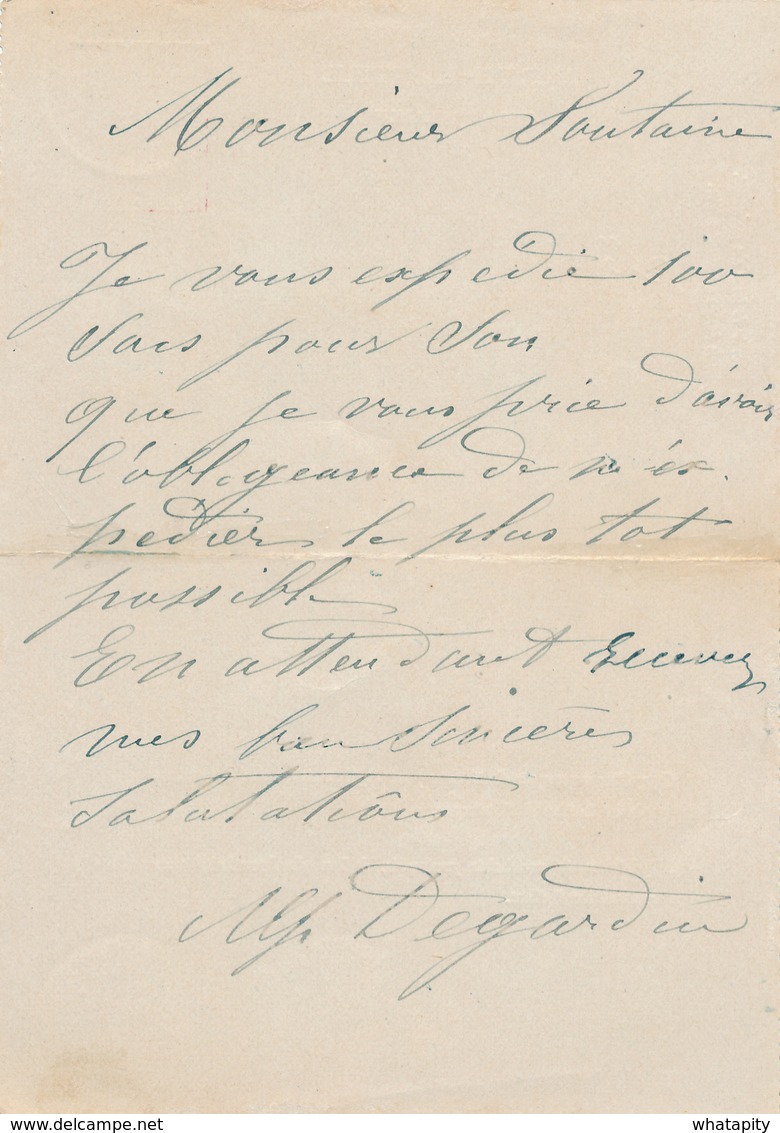 Monsieur Fontaine
Je vous expedie 100
sacs pour Son
que je vous prie d'avoir
l'obligeance de m'éx
pedier le plus tot
possible
En attendant recevez
mes bien Sincères
Salutations
Alp. Degardin
delcampe.net
whatapity